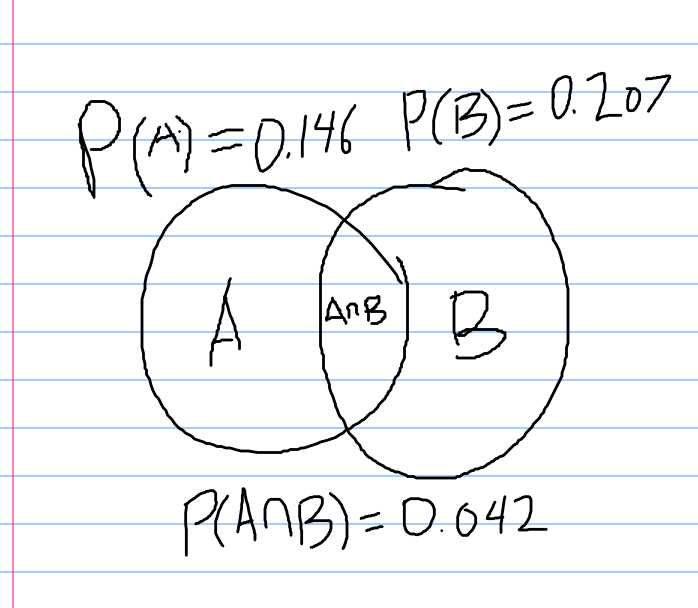 P(A)=0.146 P(B)=0.207
A A∩B B
P(A∩B)=0.042